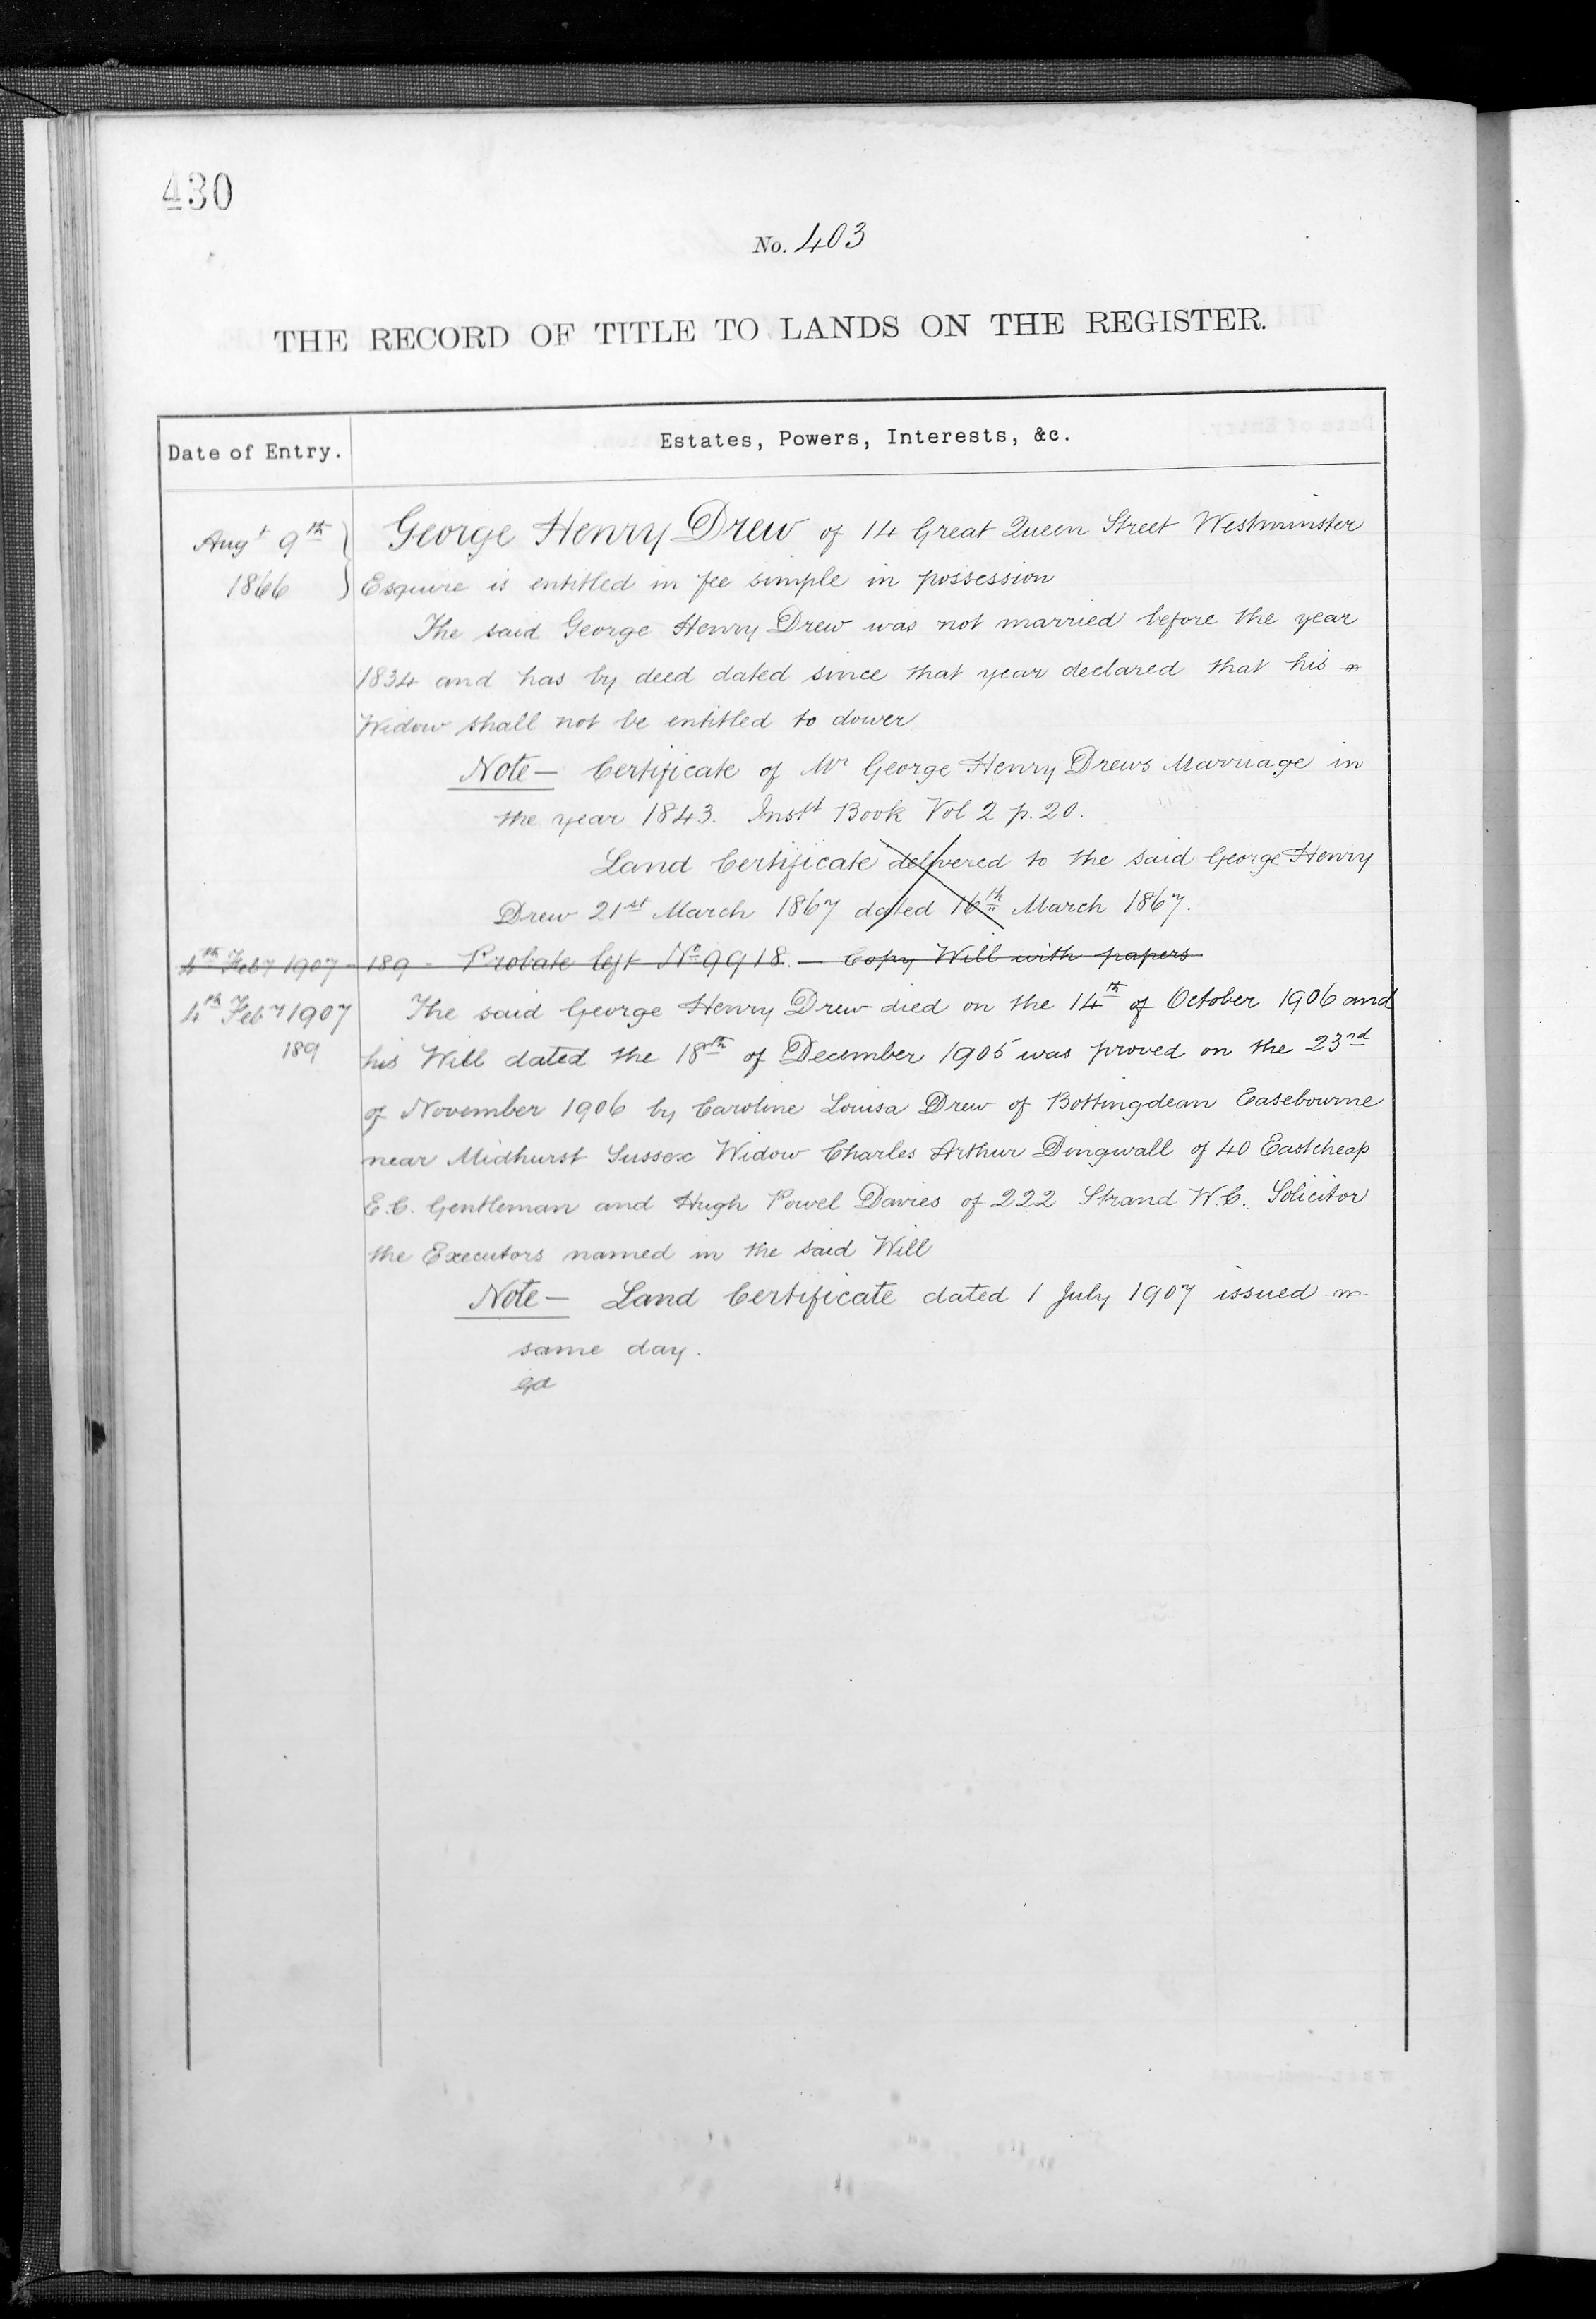 430
No. 403
THE RECORD OF TITLE TO LANDS ON THE REGISTER.
Date of Entry.
Estates, Powers, Interests, &c.
Augt 9th
1866
George Henry Drew of 14 Great Queen Street Westminster
Esquire is entitled in fee simple in possession
The said George Henry Drew was not married before the year
1834 and has by deed dated since that year declared that his
Widow shall not be entitled to dower
Note — Certificate of Mr George Henry Drews Marriage in
the year 1843. Instt Book Vol 2 p. 20.
Land Certificate delivered to the said George Henry
Drew 21st March 1867 dated 16th March 1867.
4th Feby 1907 - 189 - Probate left No 9918. — Copy Will with papers
4th Feby 1907
189
The said George Henry Drew died on the 14th of October 1906 and
his Will dated the 18th of December 1905 was proved on the 23rd
of November 1906 by Caroline Louisa Drew of Bottingdean Easebourne
near Midhurst Sussex Widow Charles Arthur Dingwall of 40 Eastcheap
E.C. Gentleman and Hugh Powel Davies of 222 Strand W.C. Solicitor
the Executors named in the said Will
Note — Land Certificate dated 1 July 1907 issued
same day.